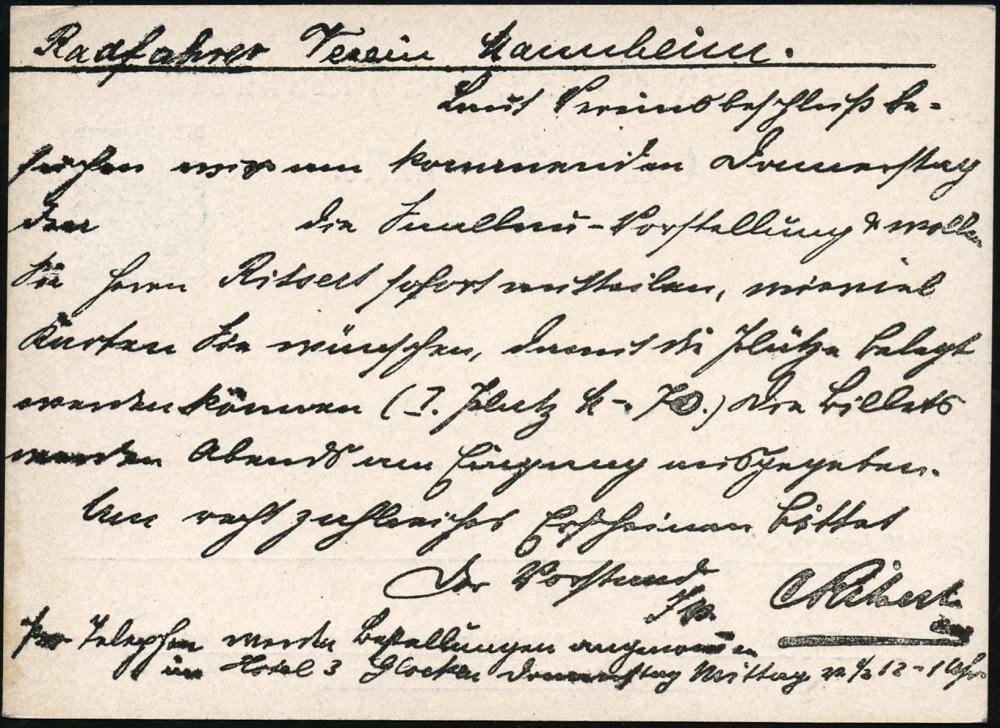 Radfahrer Verein Mannheim.
Laut Vereinsbeschluß be-
suchen wir am kommenden Donnerstag
den die Saalbau-Vorstellung & wollen
Sie Herrn Ritsert sofort mittheilen, wieviel
Karten Sie wünschen, damit die Plätze belegt
werden können (I. Platz M -.70.) Die Billets
werden Abends am Eingang ausgegeben.
Um recht zahlreiches Erscheinen bittet
Der Vorstand
Per Telephon werden Bestellungen angenommen
im Hotel 3 Glocken Donnerstag Mittag v. ½ 12 - 1 Uhr